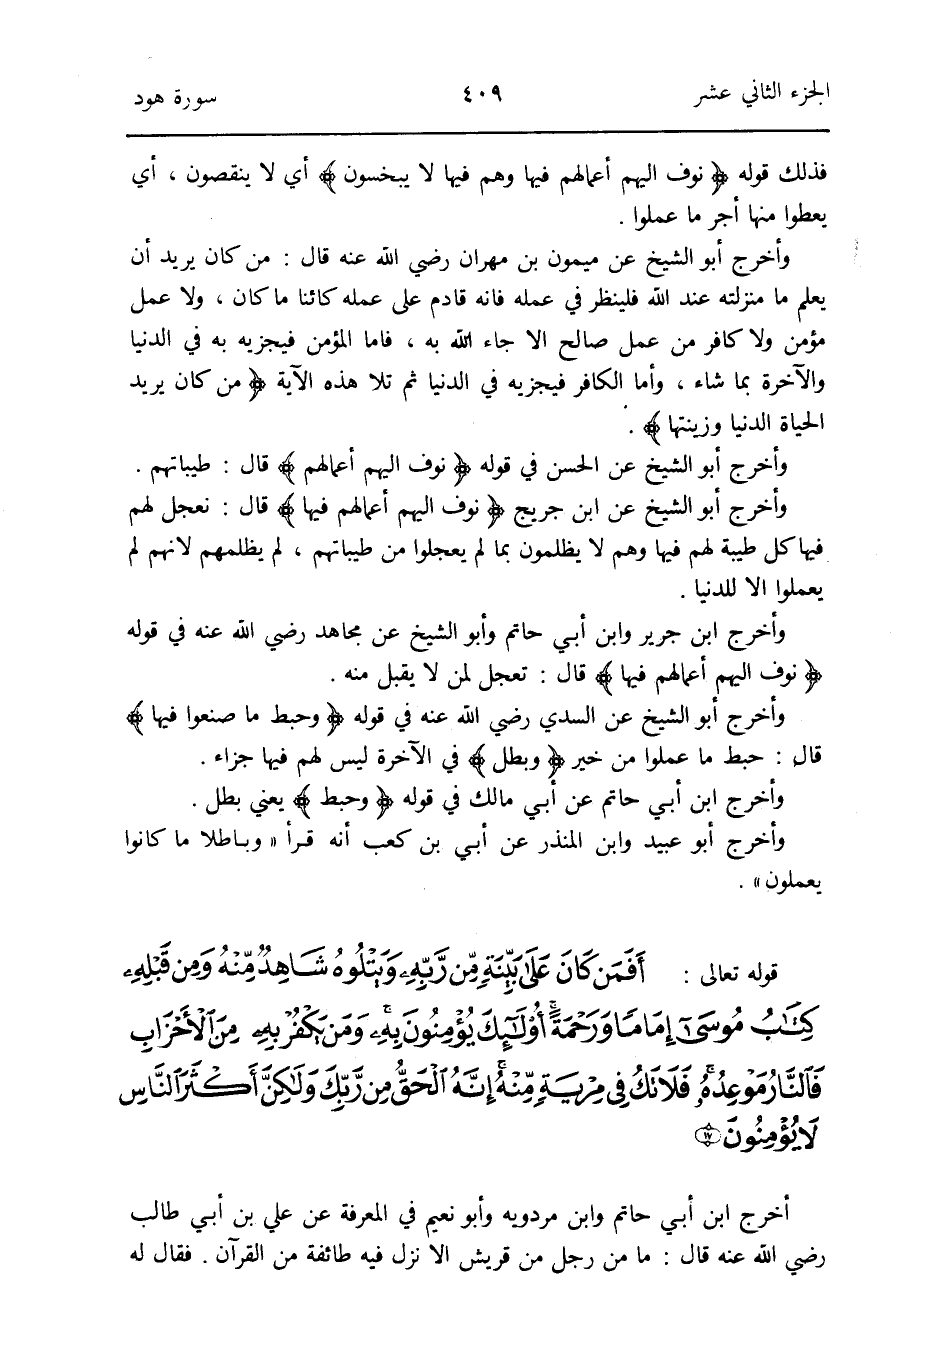 الجزء الثاني عشر ٤٠٩ سورة هود
فذلك قوله ﴿ نوف اليهم أعمالهم فيها وهم فيها لا يبخسون ﴾ أي لا ينقصون ، أي
يعطوا منها أجر ما عملوا .
وأخرج أبو الشيخ عن ميمون بن مهران رضي الله عنه قال : من كان يريد أن
يعلم ما منزلته عند الله فلينظر في عمله فانه قادم على عمله كائنا ما كان ، ولا عمل
مؤمن ولا كافر من عمل صالح الا جاء الله به ، فاما المؤمن فيجزيه به في الدنيا
والآخرة بما شاء ، وأما الكافر فيجزيه في الدنيا ثم تلا هذه الآية ﴿ من كان يريد
الحياة الدنيا وزينتها ﴾ .
وأخرج أبو الشيخ عن الحسن في قوله ﴿ نوف اليهم أعمالهم ﴾ قال : طيباتهم .
وأخرج أبو الشيخ عن ابن جريج ﴿ نوف اليهم أعمالهم فيها ﴾ قال : نعجل لهم
فيها كل طيبة لهم فيها وهم لا يظلمون بما لم يعجلوا من طيباتهم ، لم يظلمهم لانهم لم
يعملوا الا للدنيا .
وأخرج ابن جرير وابن أبي حاتم وأبو الشيخ عن مجاهد رضي الله عنه في قوله
﴿ نوف اليهم أعمالهم فيها ﴾ قال : تعجل لمن لا يقبل منه .
وأخرج أبو الشيخ عن السدي رضي الله عنه في قوله ﴿ وحبط ما صنعوا فيها ﴾
قال : حبط ما عملوا من خير ﴿ وبطل ﴾ في الآخرة ليس لهم فيها جزاء .
وأخرج ابن أبي حاتم عن أبي مالك في قوله ﴿ وحبط ﴾ يعني بطل .
وأخرج أبو عبيد وابن المنذر عن أبي بن كعب أنه قرأ « وباطلا ما كانوا
يعملون » .
قوله تعالى : أَفَمَن كَانَ عَلَىٰ بَيِّنَةٍ مِّن رَّبِّهِۦ وَيَتْلُوهُ شَاهِدٌ مِّنْهُ وَمِن قَبْلِهِۦ
كِتَٰبُ مُوسَىٰٓ إِمَامًا وَرَحْمَةً ۚ أُوْلَٰٓئِكَ يُؤْمِنُونَ بِهِۦ ۚ وَمَن يَكْفُرْ بِهِۦ مِنَ الْأَحْزَابِ
فَالنَّارُ مَوْعِدُهُۥ ۚ فَلَا تَكُ فِى مِرْيَةٍ مِّنْهُ ۚ إِنَّهُ الْحَقُّ مِن رَّبِّكَ وَلَٰكِنَّ أَكْثَرَ النَّاسِ
لَا يُؤْمِنُونَ ١٧
أخرج ابن أبي حاتم وابن مردويه وأبو نعيم في المعرفة عن علي بن أبي طالب
رضي الله عنه قال : ما من رجل من قريش الا نزل فيه طائفة من القرآن . فقال له